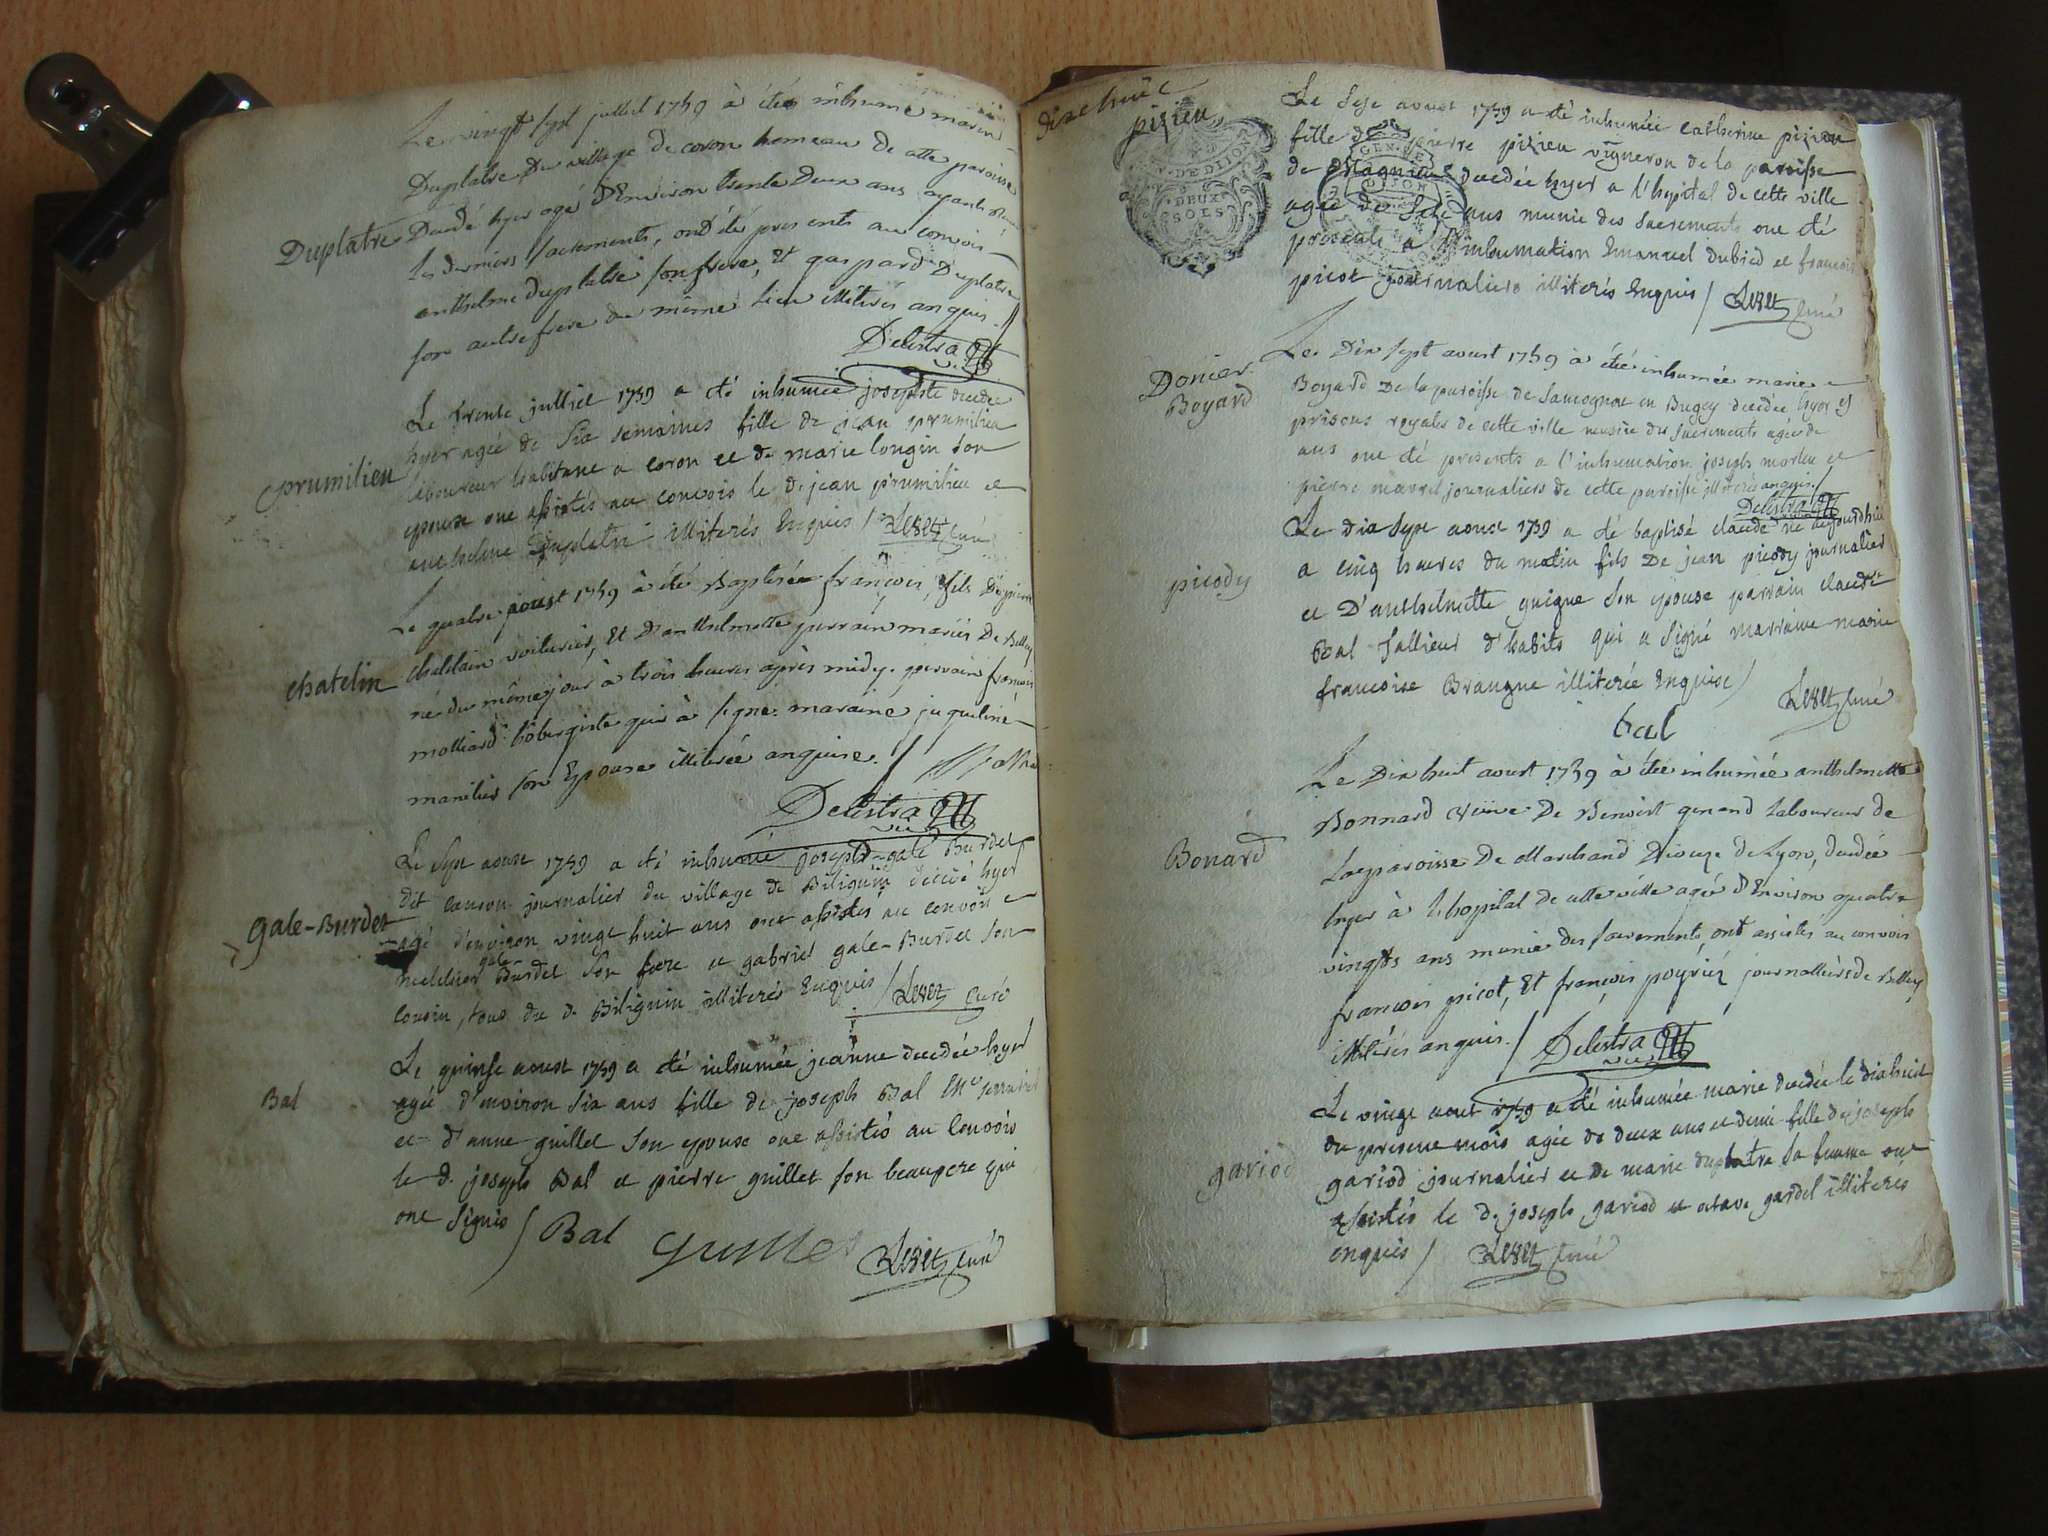 Le vingt sept juillet 1759 à été inhumé marin
Duplatre Du village de coron hameau de cette paroisse
Duplatre
Decedé hyer agé d'Environ trente Deux ans ayant
les derniers sacrements, ont été presents au convoi
anthelme duplatre son frere, Et gaspard Duplatre
son autre frere du même lieu illiterés anquis
Delestra
Le trente julliet 1759 a été inhumée josephte decedée
hyer agée de six semaines fille de jean prumilieu
prumilieu
laboureur habitant a coron et de marie longin son
epouse ont assistés au convois le d. jean prumilieu et
anthelme Duplatre illiterés Enquis / curé
Le quatre aoust 1759 à été Baptisé françois, fils De pierre
chatelin
chatelain voiturier, Et D'anthelmette jurrain mariés De Belley
né du même jour à trois heures après midy. parrain francois
molliard hôbergiste qui à signé. maraine jaqueline
marilier son Epouse illiterée anquise. /
Delestra vic
Le sept aoust 1759 a été inhumé joseph gale Burdet
dit canson journalier du village de Biliguin decedé hyer
gale-Burdet
agé d'environ vingt huit ans ont assistés au convois
melchior gale Burdet son frere et gabriel gale-Burdet son
cousin, tous du d. Biliguin illiterés Enquis / curé
Le quinse aoust 1759 a été inhumée jeanne decedée hyer
Bal
agée d'environ six ans fille de joseph Bal Me serrurier
et d'anne guillet son epouse ont assistés au convois
le d. joseph Bal et pierre guillet son beaupere qui
ont signés / Bal guillet
curé
dixe huit
pizieu
DE DIJON
DEUX
SOLS
GEN. DE
DIJON
Le sese aoust 1759 a été inhumée catherine pizieu
fille de pierre pizieu vigneron de la paroisse
de Magnieu decedée hyer a l'hopital de cette ville
agée de sese ans munie des sacrements ont été
presents a l'inhumation Emanuel dubied et francois
picot journaliers illiterés Enquis / curé
Donier
Boyard
Le Dix sept aoust 1759 à été inhumée marie
Boyard De la paroisse de Samognat en Bugey decedée hyer es
prisons royales de cette ville munie des sacrements agée de
ans ont été presents a l'inhumation joseph morlin et
pierre marrel journaliers de cette paroisse illiterés anquis. /
Delestra
Le dix sept aoust 1759 a été baptisé claude né aujourdhui
picody
a cinq heures du matin fils De jean picody journalier
et D'anthelmette guigue son epouse parrain claude
Bal tallieur d'habits qui a signé marraine marie
francoise Brangue illiterée Enquise /
curé
bal
Le Dix huit aoust 1759 à été inhumée anthelmette
Bonard
Bonnard veuve De Benoist genand laboureur de
la paroisse De Marchand Diocèze de Lyon, decedée
hyer à l'hopital de cette ville agée d'Environ quatre
vingts ans munie des sacrements, ont assistés au convoi
francois picot, Et françois poyriez journalliers de Belley
illiterés anquis. / Delestra vic
Le vingt aout 1759 a été inhumée marie decedée le dixhuit
du present mois agée de deux ans et demi fille de joseph
gariod
gariod journalier et de marie duplatre sa femme ont
assistés le d. joseph gariod et octave gardel illiterés
enquis / curé